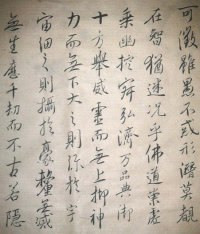 可徵雖愚不惑形潛莫覩
在智猶迷況乎佛道崇虛
乘幽控寂弘濟萬品典御
十方舉威靈而無上抑神
力而無下大之則弥於宇
宙細之則攝於豪釐無滅
無生歷千劫而不古若隱